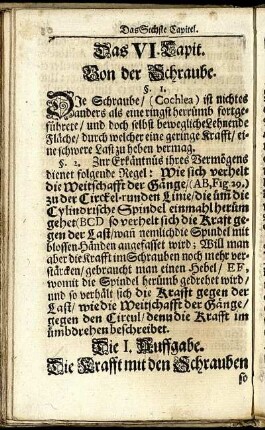 Das Sechste Capitel.
Das VI. Capit.
Von der Schraube.
§. 1.
DIe Schraube/ (Cochlea) ist nichtes
anders als eine ringst herrumb fortge-
führete/ und doch selbst bewegliche Lehnende
Fläche/ durch welcher eine geringe Krafft/ ei-
ne schwere Last zu heben vermag.
§. 2. Zur Erkäntnüs ihres Vermögens
dienet folgende Regel: Wie sich verhelt
die Weitschafft der Gänge/ (AB, Fig. 29.)
zu der Circkel-runden Linie/ die üm die
Cylindrische Spindel einmahl herüm
gehet (BCD) so verhelt sich die Krafft ge-
gen der Last/ wañ nemlich die Spindel mit
blossen Händen angefasset wird; Will man
aber die Krafft im Schrauben noch mehr ver-
stärcken/ gebraucht man einen Hebel/ EF,
womit die Spindel herümb gedrehet wird/
und so verhält sich die Krafft gegen der
Last/ wie die Weitschafft der Gänge/
gegen den Circul/ den die Krafft im
ümbdrehen beschreibet.
Die I. Auffgabe.
Die Krafft mit den Schrauben
so